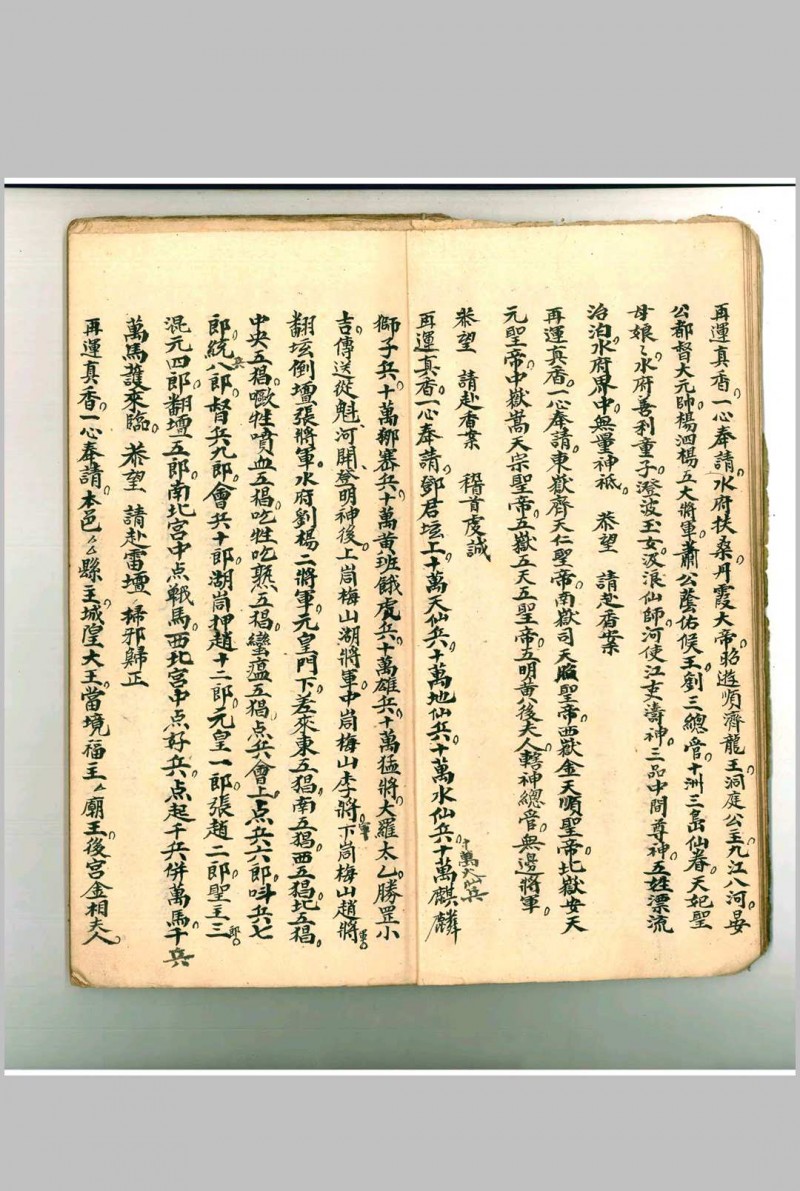 再運真香一心奉請水府扶桑丹霞大帝昭遊順濟龍王洞庭公主九江八河晏
公都督大元帥楊泗楊五大將軍蕭公蔭佑侯王劉三總管十洲三島仙眷天妃聖
母娘〻水府善利童子澄波玉女汲浪仙師河使江吏濤神三品中間尊神五姓漂流
治泊水府界中無量神祗 恭望 請赴香案
再運真香一心奉請東嶽齊天仁聖帝南嶽司天昭聖帝西嶽金天順聖帝北嶽安天
元聖帝中嶽嵩天崇聖帝五嶽五天五聖帝五明黄後夫人轄神總管無邊將軍
恭望 請赴香案 稽首虔誠
再運真香一心奉請鄧君坛上十萬天仙兵十萬地仙兵十萬水仙兵十萬火仙兵十萬麒麟
獅子兵十萬鄉寨兵十萬黄班餓虎兵十萬雄兵十萬猛將大羅太乙勝罡小
吉傳送從魁河開登明神後上峝梅山湖將軍中峝梅山李將軍下峝梅山趙將軍
翻坛倒壇張將軍水府劉楊二將軍元皇門下差來東五猖南五猖西五猖北五猖
中央五猖噉牲噴血五猖吃牲吃𤍠五猖蠻瘟五猖点兵會上点兵六郎呌兵七
郎統兵八郎督兵九郎會兵十郎湖峝押趙十二郎元皇一郎張趙二郎聖主三郎
混元四郎翻壇五郎南北宫中点戰馬西北宫中点好兵点起千兵併萬馬千兵
萬馬護來臨 恭望 請赴雷壇 掃邪歸正
再運真香一心奉請本邑厶厶縣主城隍大王當境福主厶廟王後宫金相夫人